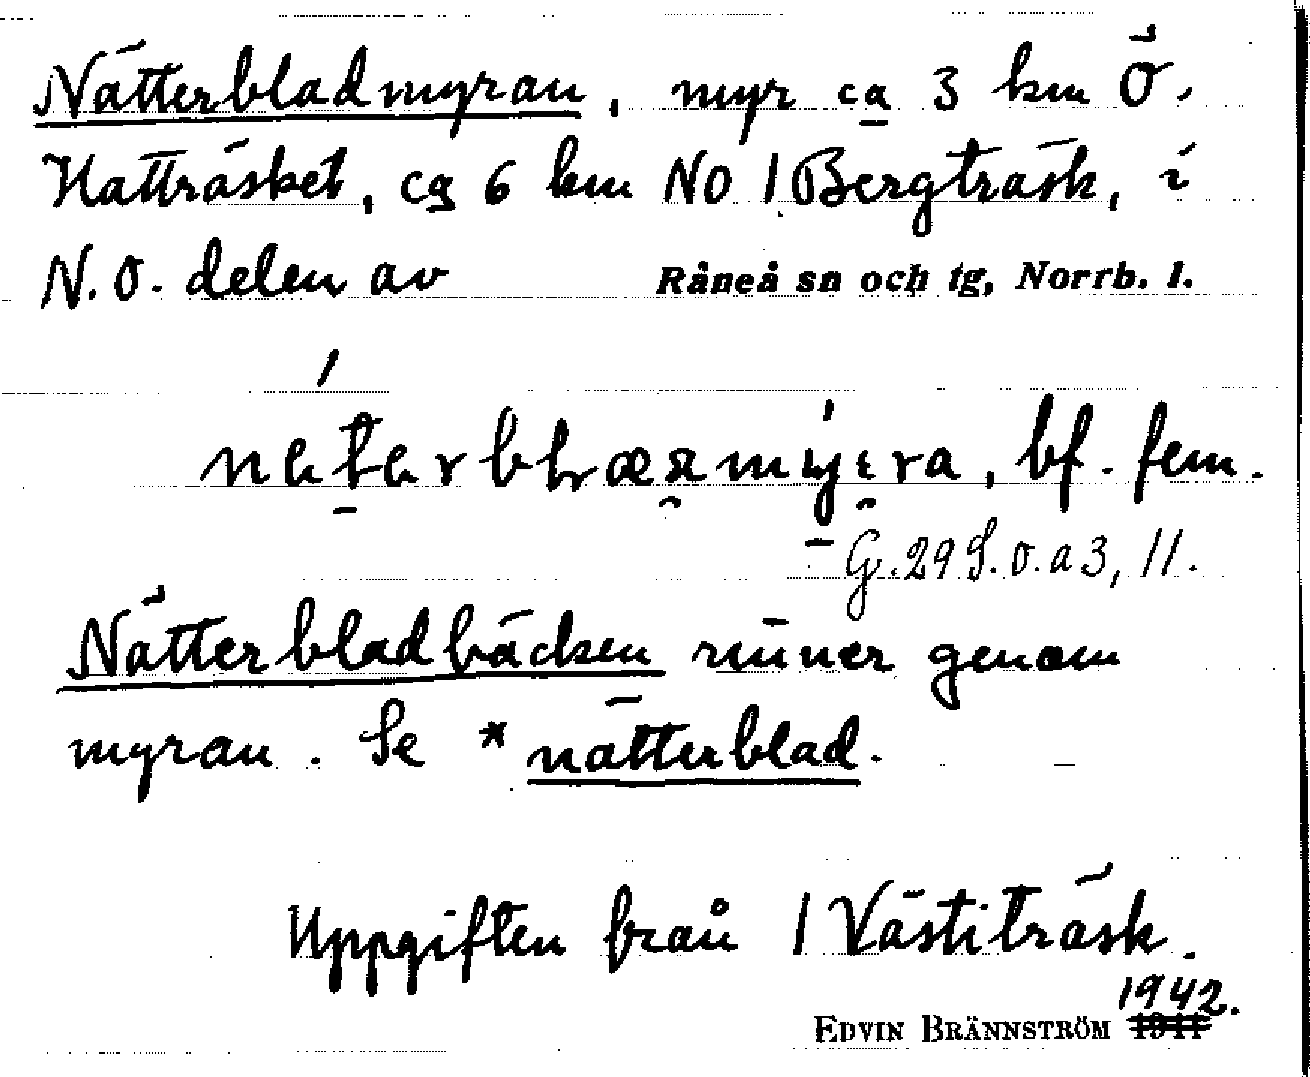 Nätterbladmyran, myr ca 3 km Ö.
Hatträsket, ca 6 km NO / Bergträsk, i
N.O. delen av Råneå sn och tg, Norrb. l.
bf. fem.
G. 29 S. o. a 3, 11.
Nätterbladbäcken rinner genom
myran. Se * nätterblad.
Uppgiften från / Västiträsk.
1942.
EDVIN BRÄNNSTRÖM 1941